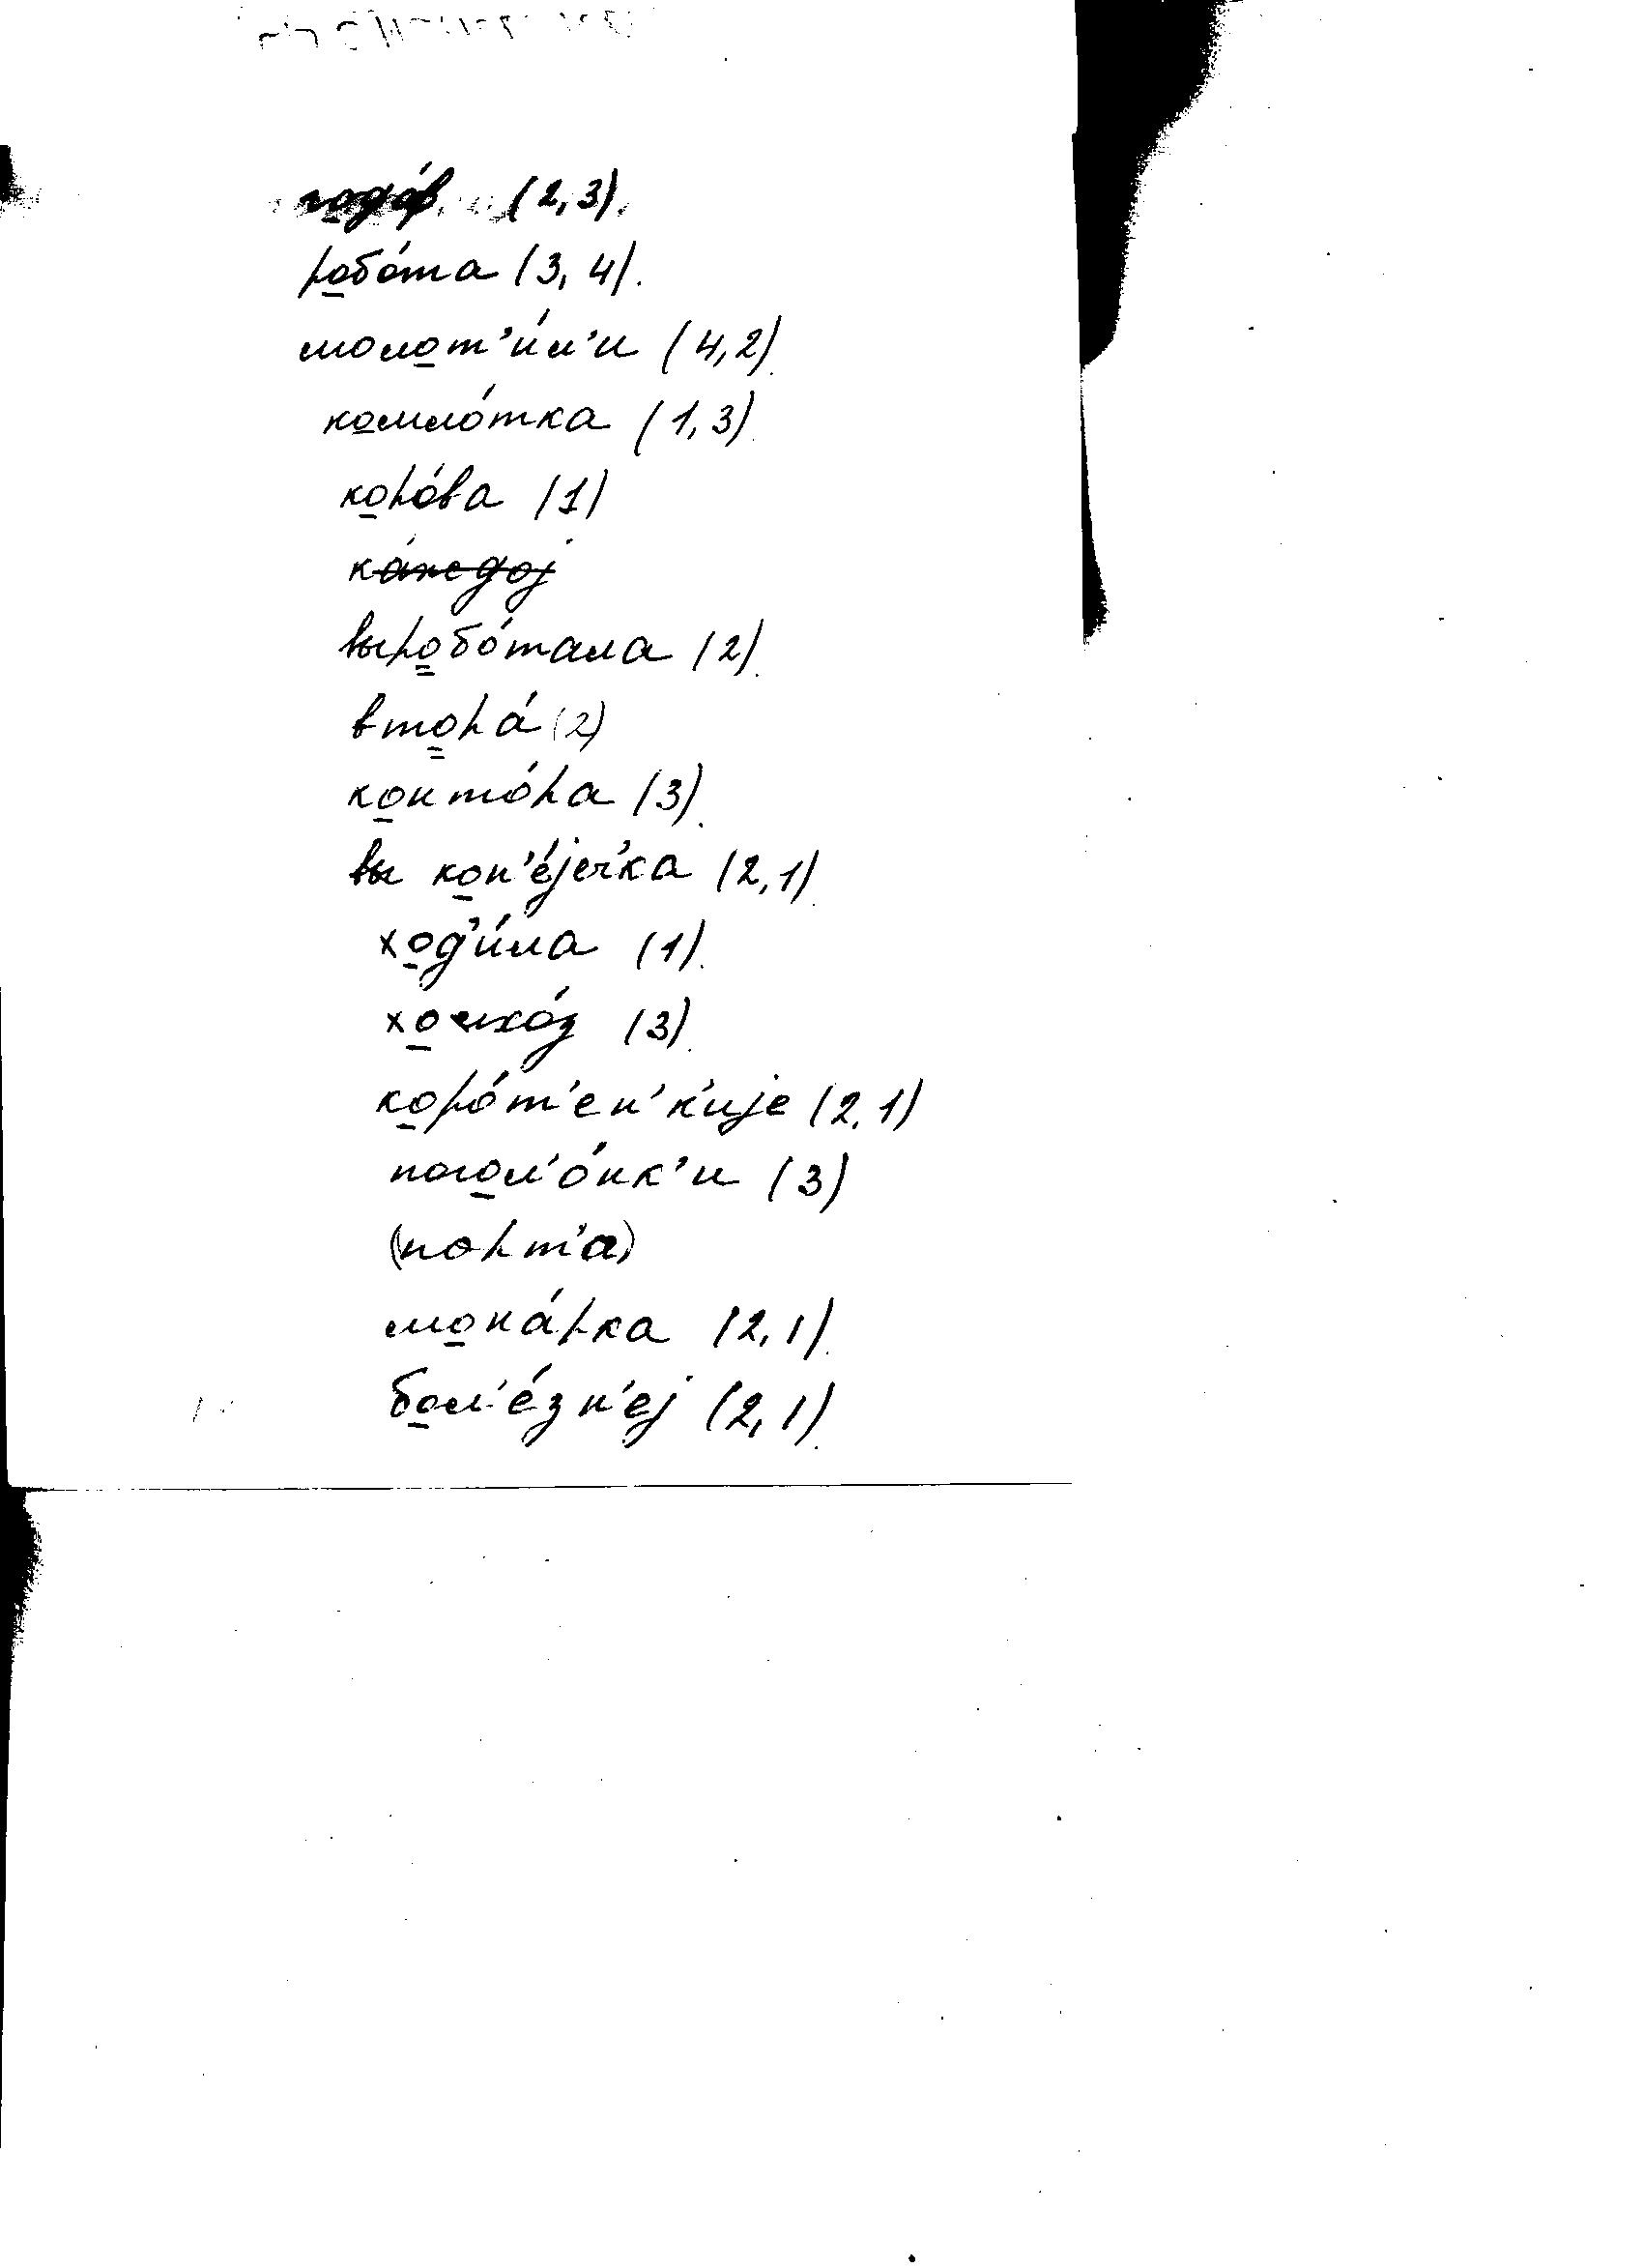 годо́в (2,3).
робо́та (3,4).
молот'и́л'и (4,2).
комло́тка (1,3).
коро́ва (1)
ка́ждој
выробо́тала (2).
втора́ (2)
конто́ра (3).
вы коп'е́јеч'ка (2,1).
ход'и́ла (1).
(3).
коро́т'ен'к'ије (2,1)
погол'о́нк'и (3)
(порт'а)
мона́рка (2,1).
бол'е́зн'еј (2,1).